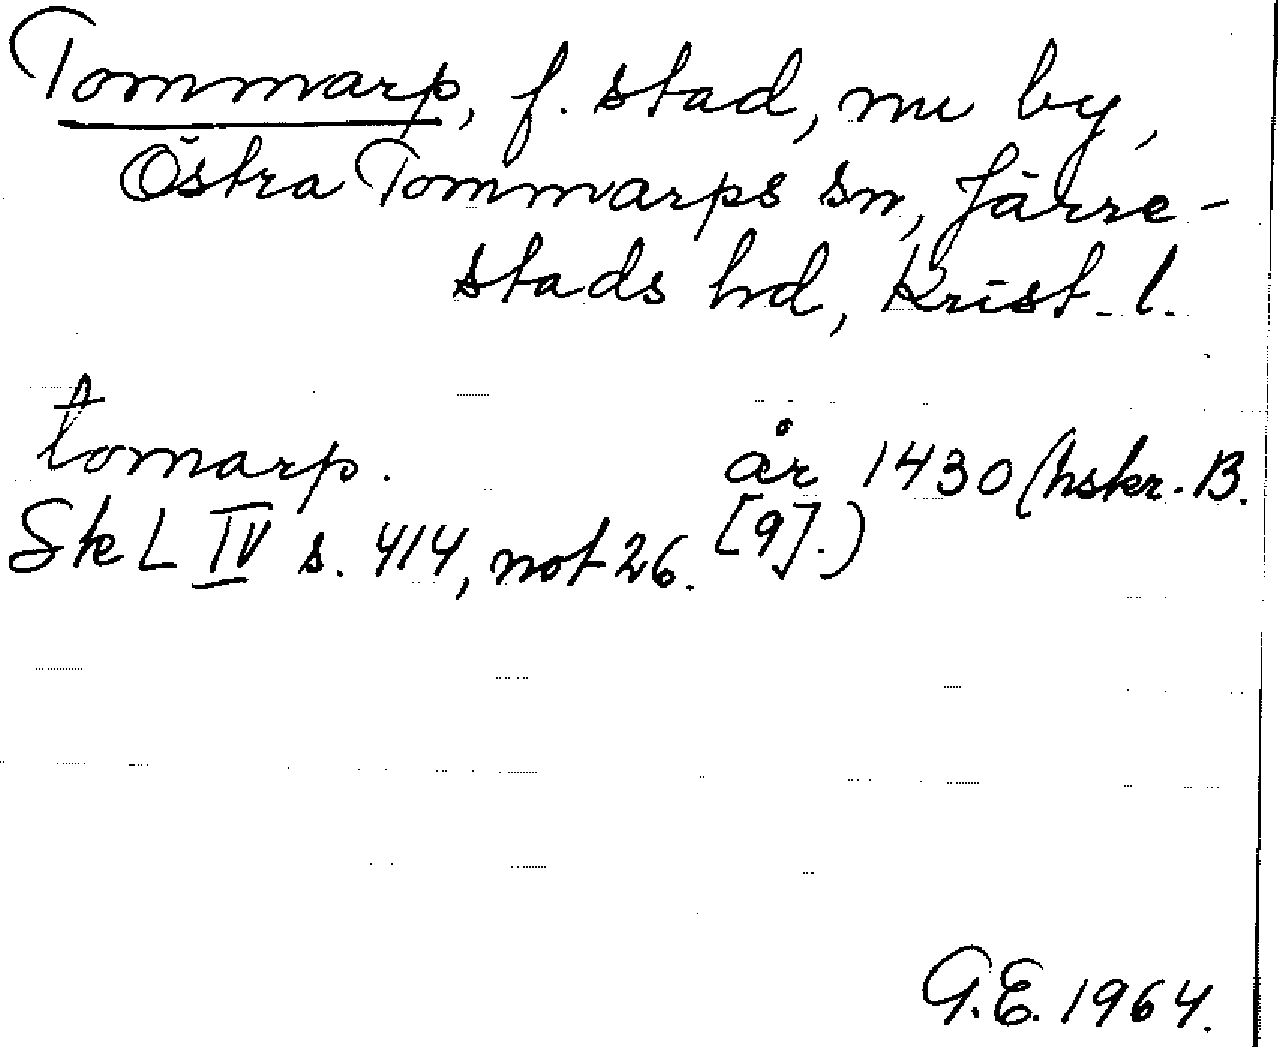 Tommarp, f. stad, nu by,
Östra Tommarps sn, Järre-
stads hd, Krist. l.
tomarp. år 1430 (hskr. B.
SkL IV s. 414, not 26. [9].)
G.E. 1964.